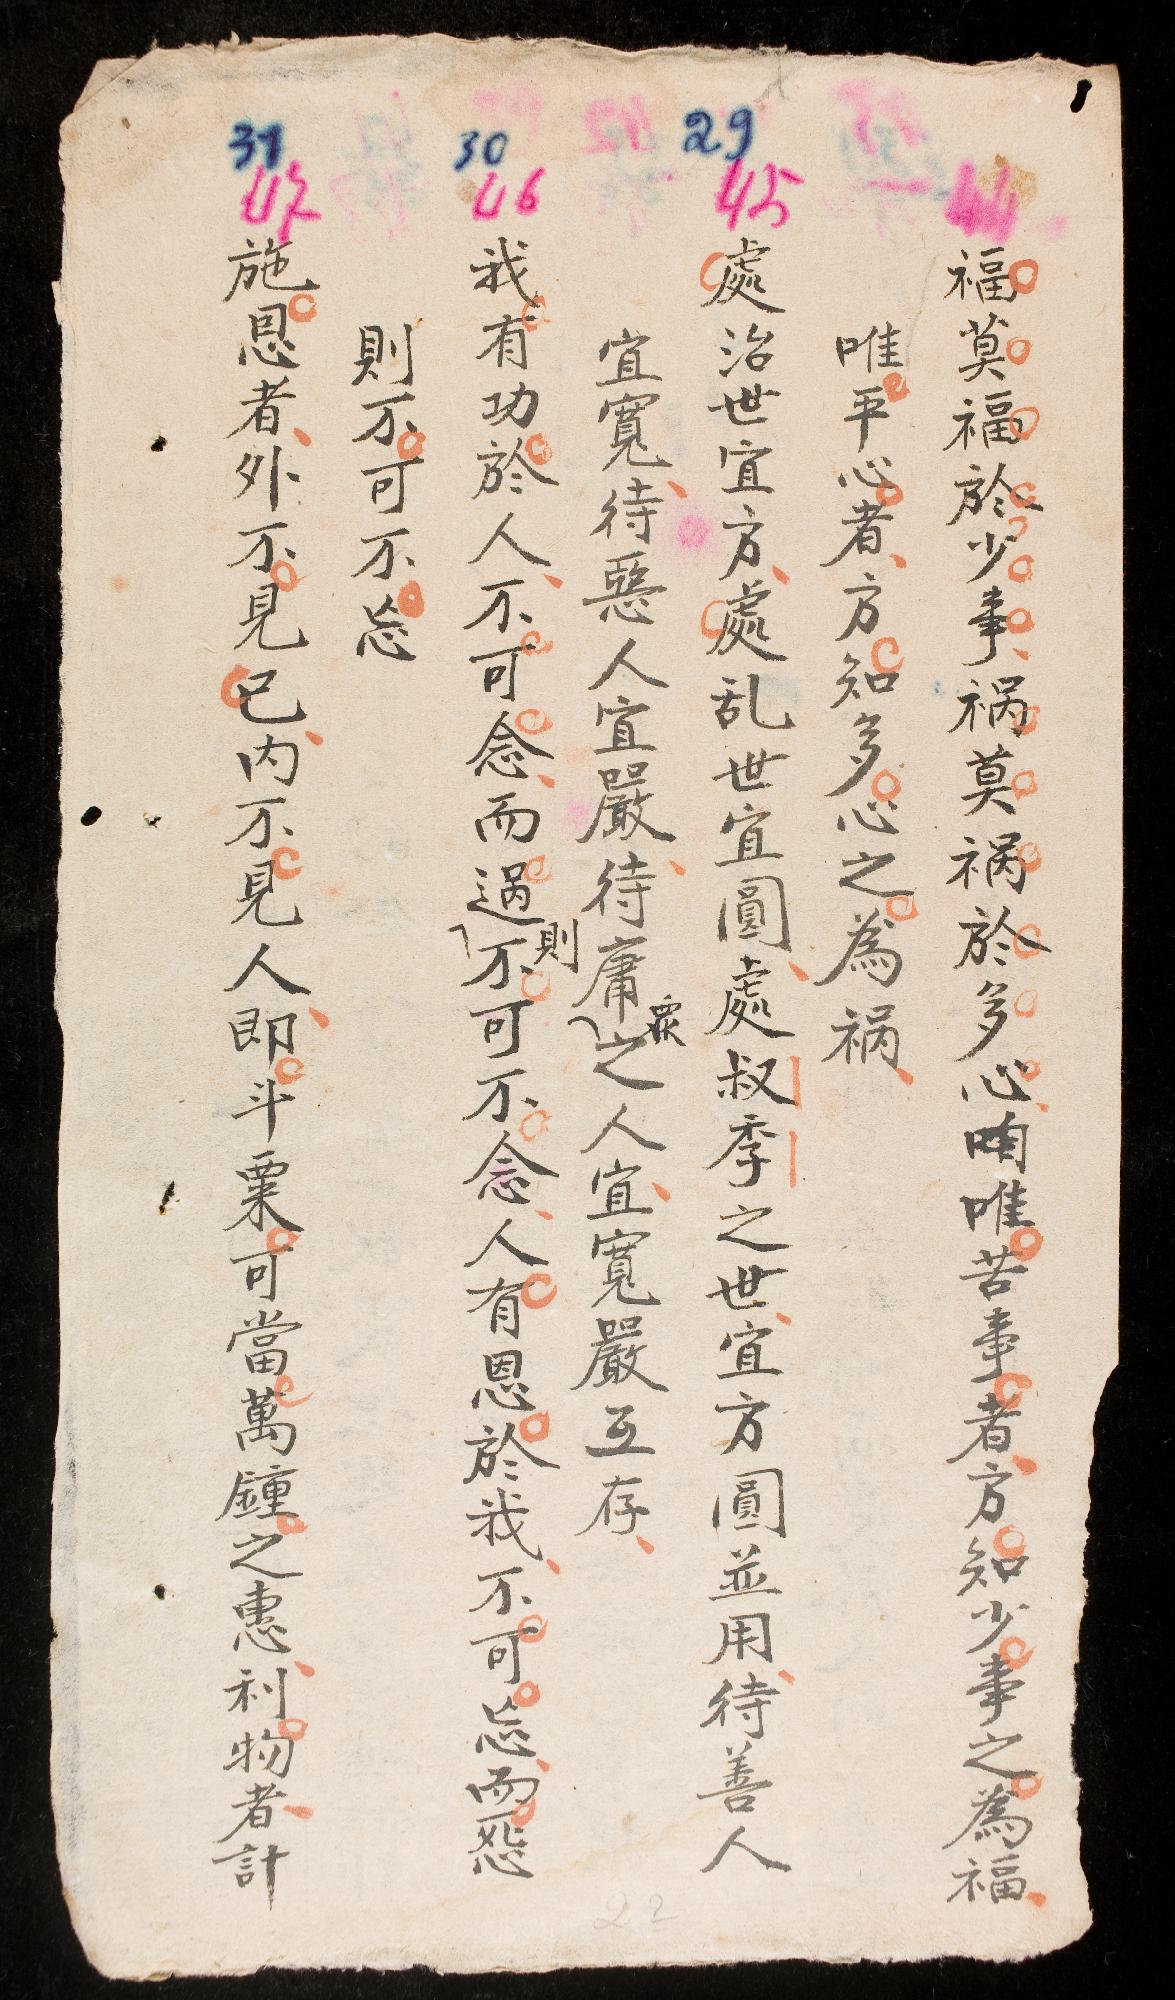 44
福莫福於少事祸莫祸於多心唯苦事者方知少事之為福
唯平心者方知多心之為祸
29
45
處治世宜方處乱世宜圓處叔季之世宜方圓並用待善人
宜寬待惡人宜嚴待庸之人宜寬嚴互存
衆
30
46
我有功於人不可念而過不可不念人有恩於我不可忘而怨
則
則不可不忘
31
47
施恩者外不見己内不見人即斗粟可當萬鍾之惠利物者計
22